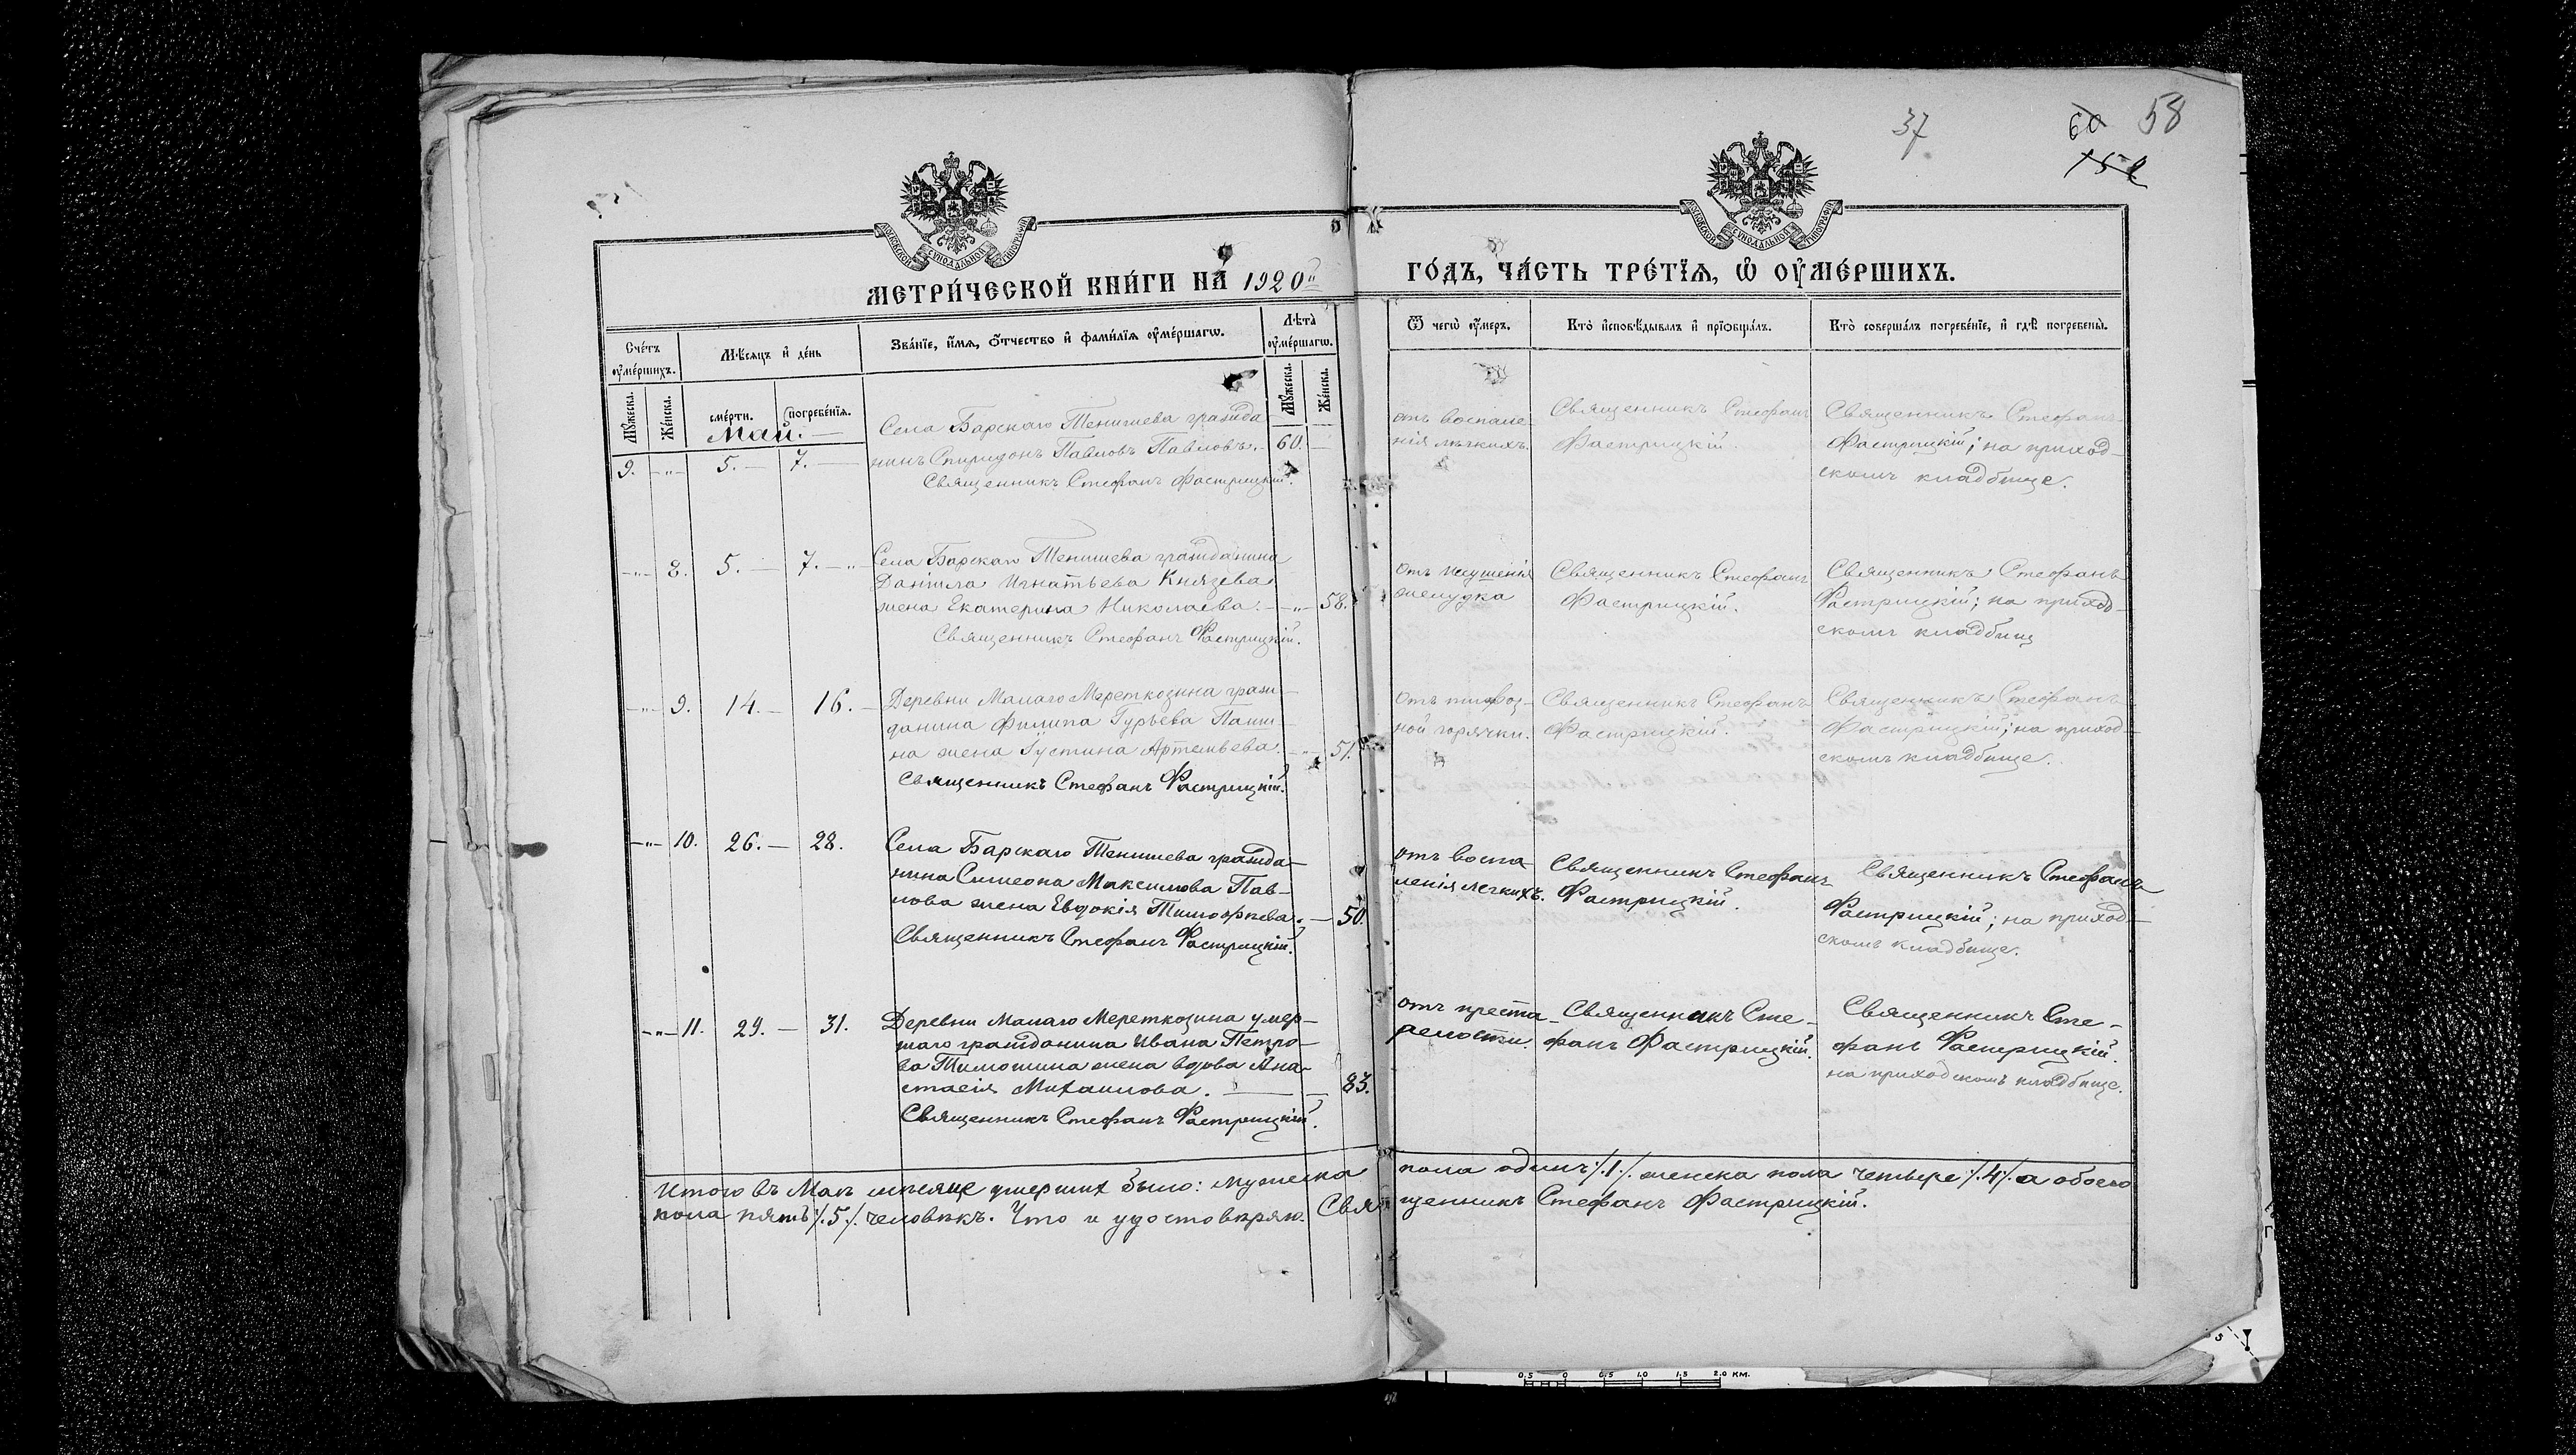 37
60 58
152
МОСКОВСКОЙ СѴНОДАЛЬНОЙ ТИПОГРАФІИ
МОСКОВСКОЙ СѴНОДАЛЬНОЙ ТИПОГРАФІИ
МЕТРИ́ЧЕСКОЙ КНИ́ГИ НА̀ 1920й
ГО́ДЪ, ЧА́СТЬ ТРЕ́ТЇѦ, Ѡ҆ ОУ҆МЕ́РШИХЪ.
Сче́тъ оу҆ме́ршихъ.
Мѣ́сяцъ и҆ де́нь
Зва́нїе, и҆́мѧ, ѻ҆́тчество и҆ фами́лїѧ оу҆ме́ршагѡ.
Лѣта̀ оу҆ме́ршагѡ.
Ѿ чегѡ̀ оу҆́меръ.
Кто̀ и҆сповѣ́дывалъ и҆ прїѡбща́лъ.
Кто̀ соверша́лъ погребе́нїе, и҆ гдѣ̀ погребены̀.
Мꙋ́жеска.
Же́нска.
сме́рти.
погребе́нїѧ.
Мꙋ́жеска.
Же́нска.
Май.
9. -"- 5. — 7. —
Села Барскаго Тенишева гражда-
нинъ Спиридонъ Павловъ Павловъ. - 60. -
Священникъ Стефанъ Фастрицкій.
отъ воспале-
нія легкихъ.
Священникъ Стефанъ
Фастрицкій.
Священникъ Стефанъ
Фастрицкій; на приход-
скомъ кладбище.
-"- 8. 5. — 7. —
Села Барскаго Тенишева гражданина
Даніила Игнатьева Князева
жена Екатерина Николаева. -"- 58.
Священникъ Стефанъ Фастрицкій.
отъ
желудка
Священникъ Стефанъ
Фастрицкій.
Священникъ Стефанъ
Фастрицкій; на приход-
скомъ кладбищ
-"- 9. 14. — 16. —
Деревни Малаго Мереткозина граж-
данина Филипа Гурьева
на жена Іустина Артемьева. -"- 51.
Священникъ Стефанъ Фастрицкій.
отъ тифоз-
ной горячки.
Священникъ Стефанъ
Фастрицкій.
Священникъ Стефанъ
Фастрицкій; на приход-
скомъ кладбище.
-"- 10. 26. — 28.
Села Барскаго Тенишева гражда-
нина Симеона Максимова Пав-
лова жена Евдокія Тимофеева. — 50.
Священникъ Стефанъ Фастрицкій.
отъ воспа-
ленія легкихъ.
Священникъ Стефанъ
Фастрицкій.
Священникъ Стефанъ
Фастрицкій; на приход-
скомъ кладбище.
-"- 11. 29. — 31.
Деревни Малаго Мереткозина умер-
шаго гражданина Ивана Петро-
ва Тимошина жена вдова Ана-
стасія Михаилова. — 83.
Священникъ Стефанъ Фастрицкій.
отъ преста-
релости.
Священникъ Сте-
фанъ Фастрицкій.
Священникъ Сте-
фанъ Фастрицкій.
на приходскомъ кладбище.
Итого въ Маѣ месяце умерших было: мужеска пола одинъ /.1./ женска пола четыре /.4./ а обоего
пола пять /.5./ человѣкъ. Что и удостовѣряю. Священникъ Стефанъ Фастрицкій.
0.5 0 0.5 1.0 1.5 2.0 KM.